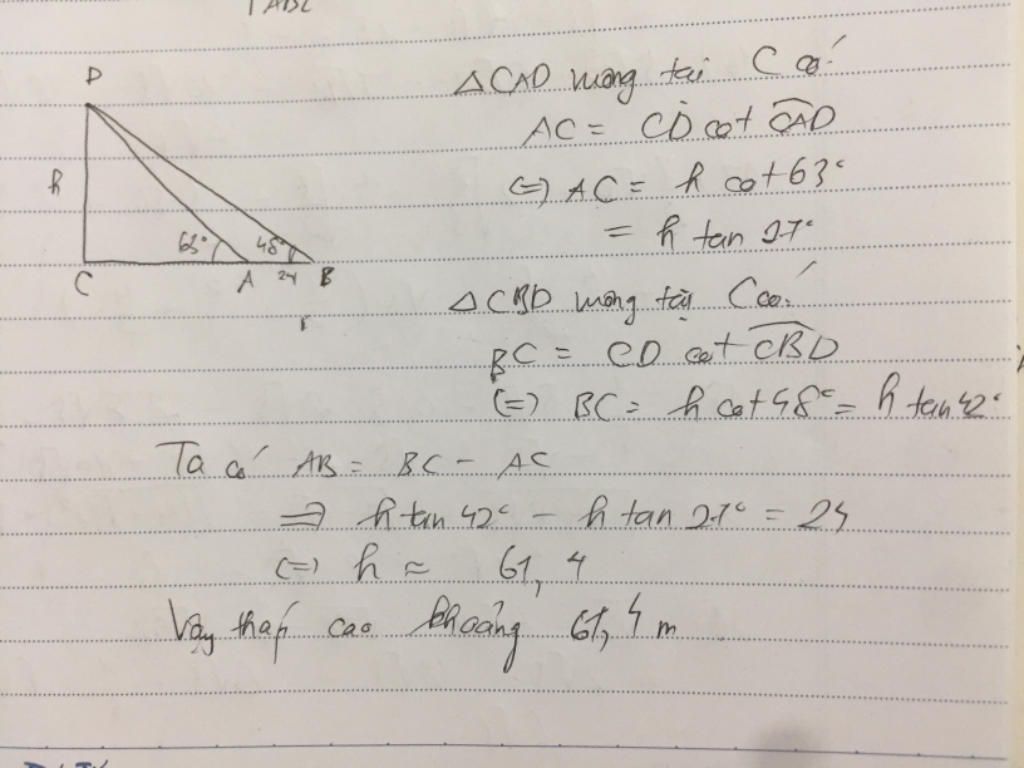 D
h
63° 48°
C A 24 B
△CAD vuông tại C có:
AC = CD cot CAD
(=) AC = h cot 63°
= h tan 27°
△CBD vuông tại C có:
BC = CD cot CBD
(=) BC = h cot 48° = h tan 42°
Ta có AB = BC - AC
=> h tan 42° - h tan 27° = 24
(=) h ≈ 61,4
Vậy tháp cao khoảng 61,4 m